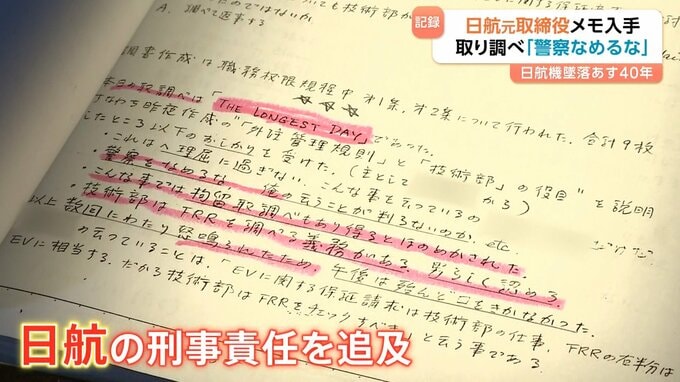 記録
日航元取締役メモ入手
取り調べ「警察なめるな」
日航機墜落あす40年
A. 調べて返事する
調書作成は職務权限規程中 才1条, 才2条について行われた. 合計9枚
本日の取調べは「THE LONGEST DAY」であった.
すなわち昨夜作成の"外注管理規則」と「技術部」の役目"を説明
したところ以下のおしかりを受けた. (主として
・これはヘ理屈に過ぎない. こんな事を云っているの
・警察をなめるな. 俺の云うことが判るないのか. etc.
・こんな事では拘留取調べもあり得るとほのめかされた.
・技術部はFRRを調べる義務がある. 潔らしく認める.
以上 数回にわたり怒鳴られたため, 午後は殆んど口をきかなかった.
の云っていることは,「EVに関する保証請求は技術部の仕事. FRRの右半分は
EVに相当する. だから技術部はFRRをチェックすべき」と云う事である.
日航の刑事責任を追及